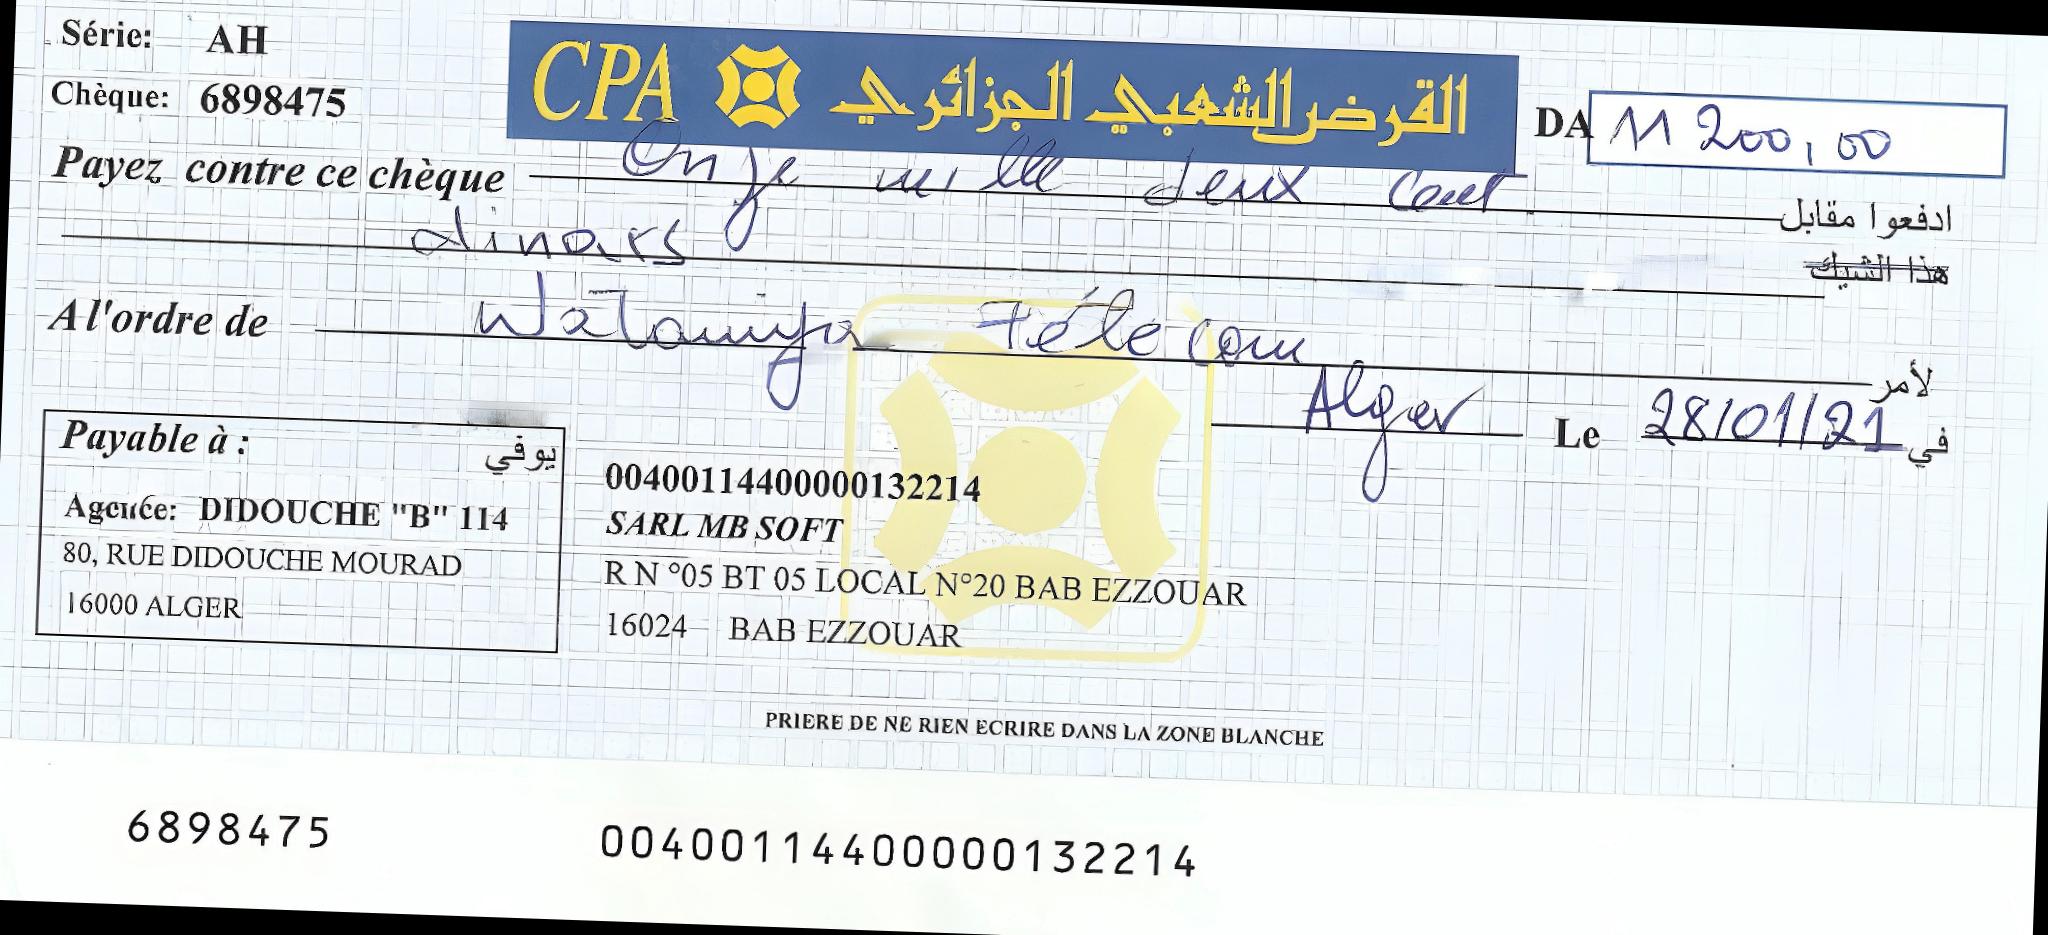 Série: AH
CPA القرض الشعبي الجزائري
Chèque: 6898475
DA 11 200,00
Payez contre ce chèque Onze mille deux cent ادفعوا مقابل
dinars هذا الشيك
A l'ordre de Wataniya Télécom لأمر
Alger Le 28/01/21 في
Payable à : يوفي
Agence: DIDOUCHE "B" 114
80, RUE DIDOUCHE MOURAD
16000 ALGER
00400114400000132214
SARL MB SOFT
R N °05 BT 05 LOCAL N°20 BAB EZZOUAR
16024 BAB EZZOUAR
PRIERE DE NE RIEN ECRIRE DANS LA ZONE BLANCHE
6898475 00400114400000132214